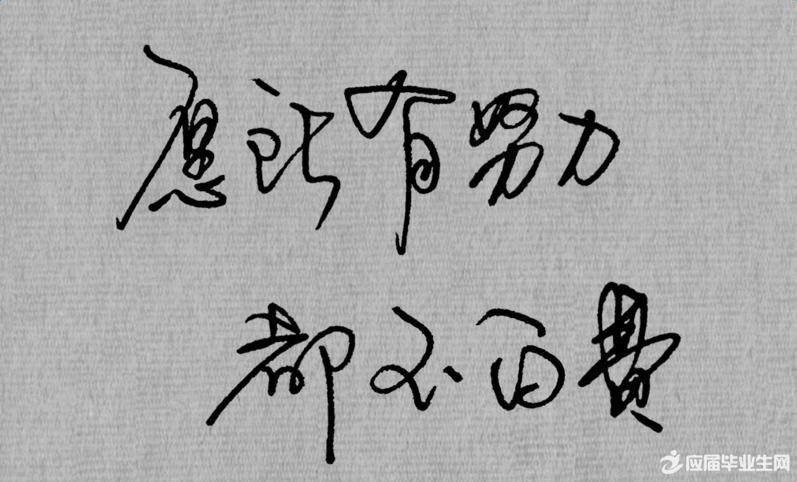 愿所有努力
都不白费
应届毕业生网